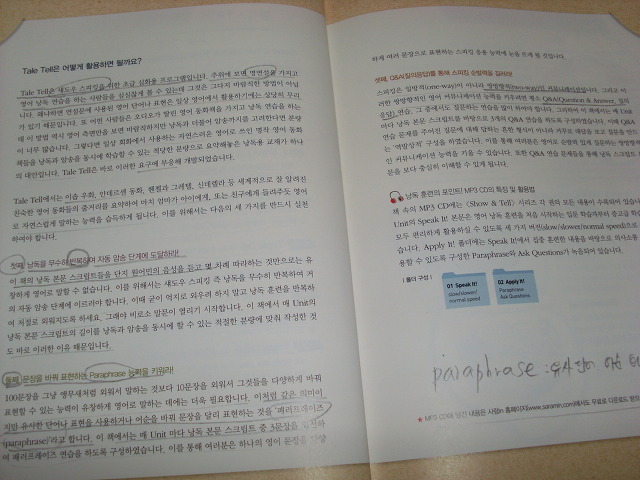 Tale Tell은 어떻게 활용하면 될까요?
Tale Tell은 섀도우 스피킹을 위한 초급 심화용 프로그램입니다. 주위에 보면 명연설을 가지고
영어 낭독 연습을 하는 사람들을 심심찮게 볼 수 있는데 그것은 그다지 바람직한 방법이 아닙
니다. 왜냐하면 연설문에 사용된 영어 단어나 표현은 일상 영어에서 활용하기에는 상당히 무리
가 있기 때문입니다. 또 어떤 사람들은 오디오가 딸린 영어 동화책을 가지고 낭독 연습을 하는
데 이 방법 역시 영어 측면만을 보면 바람직하지만 낭독과 더불어 암송까지를 고려한다면 분량
이 너무 많습니다. 그렇다면 일상 회화에서 사용하는 자연스러운 영어로 쓰인 명작 영어 동화
책들을 낭독과 암송을 동시에 학습할 수 있는 적당한 분량으로 요약해놓은 낭독용 교재가 하나
의 대안입니다. Tale Tell은 바로 이러한 요구에 부응해 개발되었습니다.
Tale Tell에서는 이솝 우화, 안데르센 동화, 헨젤과 그레텔, 신데렐라 등 세계적으로 잘 알려진
친숙한 영어 동화들의 줄거리를 요약하여 마치 엄마가 아이에게, 또는 친구에게 들려주듯 영어
로 자연스럽게 말하는 능력을 습득하게 됩니다. 이를 위해서는 다음의 세 가지를 반드시 실천
하여야 합니다.
첫째, 낭독을 무수히 반복하여 자동 암송 단계에 도달하라!
이 책의 낭독 본문 스크립트들을 단지 원어민의 음성을 듣고 몇 차례 따라하는 것만으로는 유
창하게 영어로 말할 수 없습니다. 이를 위해서는 섀도우 스피킹 즉 낭독을 무수히 반복하여 거
의 자동 암송 단계에 이르러야 합니다. 이때 굳이 억지로 외우려 하지 말고 낭독 훈련을 반복하
여 저절로 외워지도록 하세요. 그래야 비로소 말문이 열리기 시작합니다. 이 책에서 매 Unit의
낭독 본문 스크립트의 길이를 낭독과 암송을 동시에 할 수 있는 적절한 분량에 맞춰 작성한 것
도 바로 이러한 이유 때문입니다.
둘째, 문장을 바꿔 표현하는 Paraphrase 능력을 키워라!
100문장을 그냥 앵무새처럼 외워서 말하는 것보다 10문장을 외워서 그것들을 다양하게 바꿔
표현할 수 있는 능력이 유창하게 영어로 말하는 데에는 더욱 필요합니다. 이처럼 같은 의미이
지만 유사한 단어나 표현을 사용하거나 어순을 바꿔 문장을 달리 표현하는 것을 '패러프레이즈
(paraphrase)'라고 합니다. 이 책에서는 매 Unit 마다 낭독 본문 스크립트 중 3문장을
여 패러프레이즈 연습을 하도록 구성하였습니다. 이를 통해 여러분은 하나의 영어 문장을
하게 여러 문장으로 표현하는 스피킹 응용 능력에 눈을 뜨게 될 것입니다.
셋째, Q&A(질의응답)를 통해 스피킹 순발력을 길러라!
스피킹은 일방적(one-way)이 아니라 쌍방향적(two-way)인 커뮤니케이션입니다. 그리고 이
러한 쌍방향적인 영어 커뮤니케이션 능력을 키우려면 평소 Q&A(Question & Answer, 질의
응답) 연습, 그 중에서도 질문하는 연습을 많이 하여야 합니다. 그러하여 이 책에서는 매 Unit
마다 낭독 본문 스크립트를 바탕으로 3개의 Q&A 연습을 하도록 구성하였습니다. 이때 Q&A
연습 문제를 주어진 질문에 대해 답하는 흔한 형식이 아니라 거꾸로 해답을 보고 질문을 만드
는 '역방상적' 구성을 하였습니다. 이를 통해 여러분은 영어로 순발력 있게 질문하는 쌍방향적
인 커뮤니케이션 능력을 키울 수 있습니다. 또한 Q&A 연습 문제들을 통해 낭독 스크립트 본
문을 보다 충실히 이해할 수 있게 됩니다.
낭독 훈련의 포인트! MP3 CD의 특징 및 활용법
책 속의 MP3 CD에는 〈Show & Tell〉 시리즈 각 권의 모든 내용이 수록되어 있습니다
Unit의 Speak It! 본문은 영어 낭독 훈련을 처음 시작하는 입문 학습자부터 중고급 학습
모두 편리하게 활용하실 수 있도록 세 가지 버전(slow/slower/normal speed)으로
습니다. Apply It! 폴더에는 Speak It!에서 집중 훈련한 내용을 바탕으로 의사소통
용할 수 있도록 구성한 Paraphrase와 Ask Questions가 녹음되어 있습니다.
| 폴더 구성 |
01 Speak It!
slow/slower/
normal speed
02 Apply It!
Paraphrase
Ask Questions
paraphrase : 유사단어
★ MP3 CD에 담긴 내용은 사람in 홈페이지(www.saramin.com)에서도 무료로 다운로드 받으